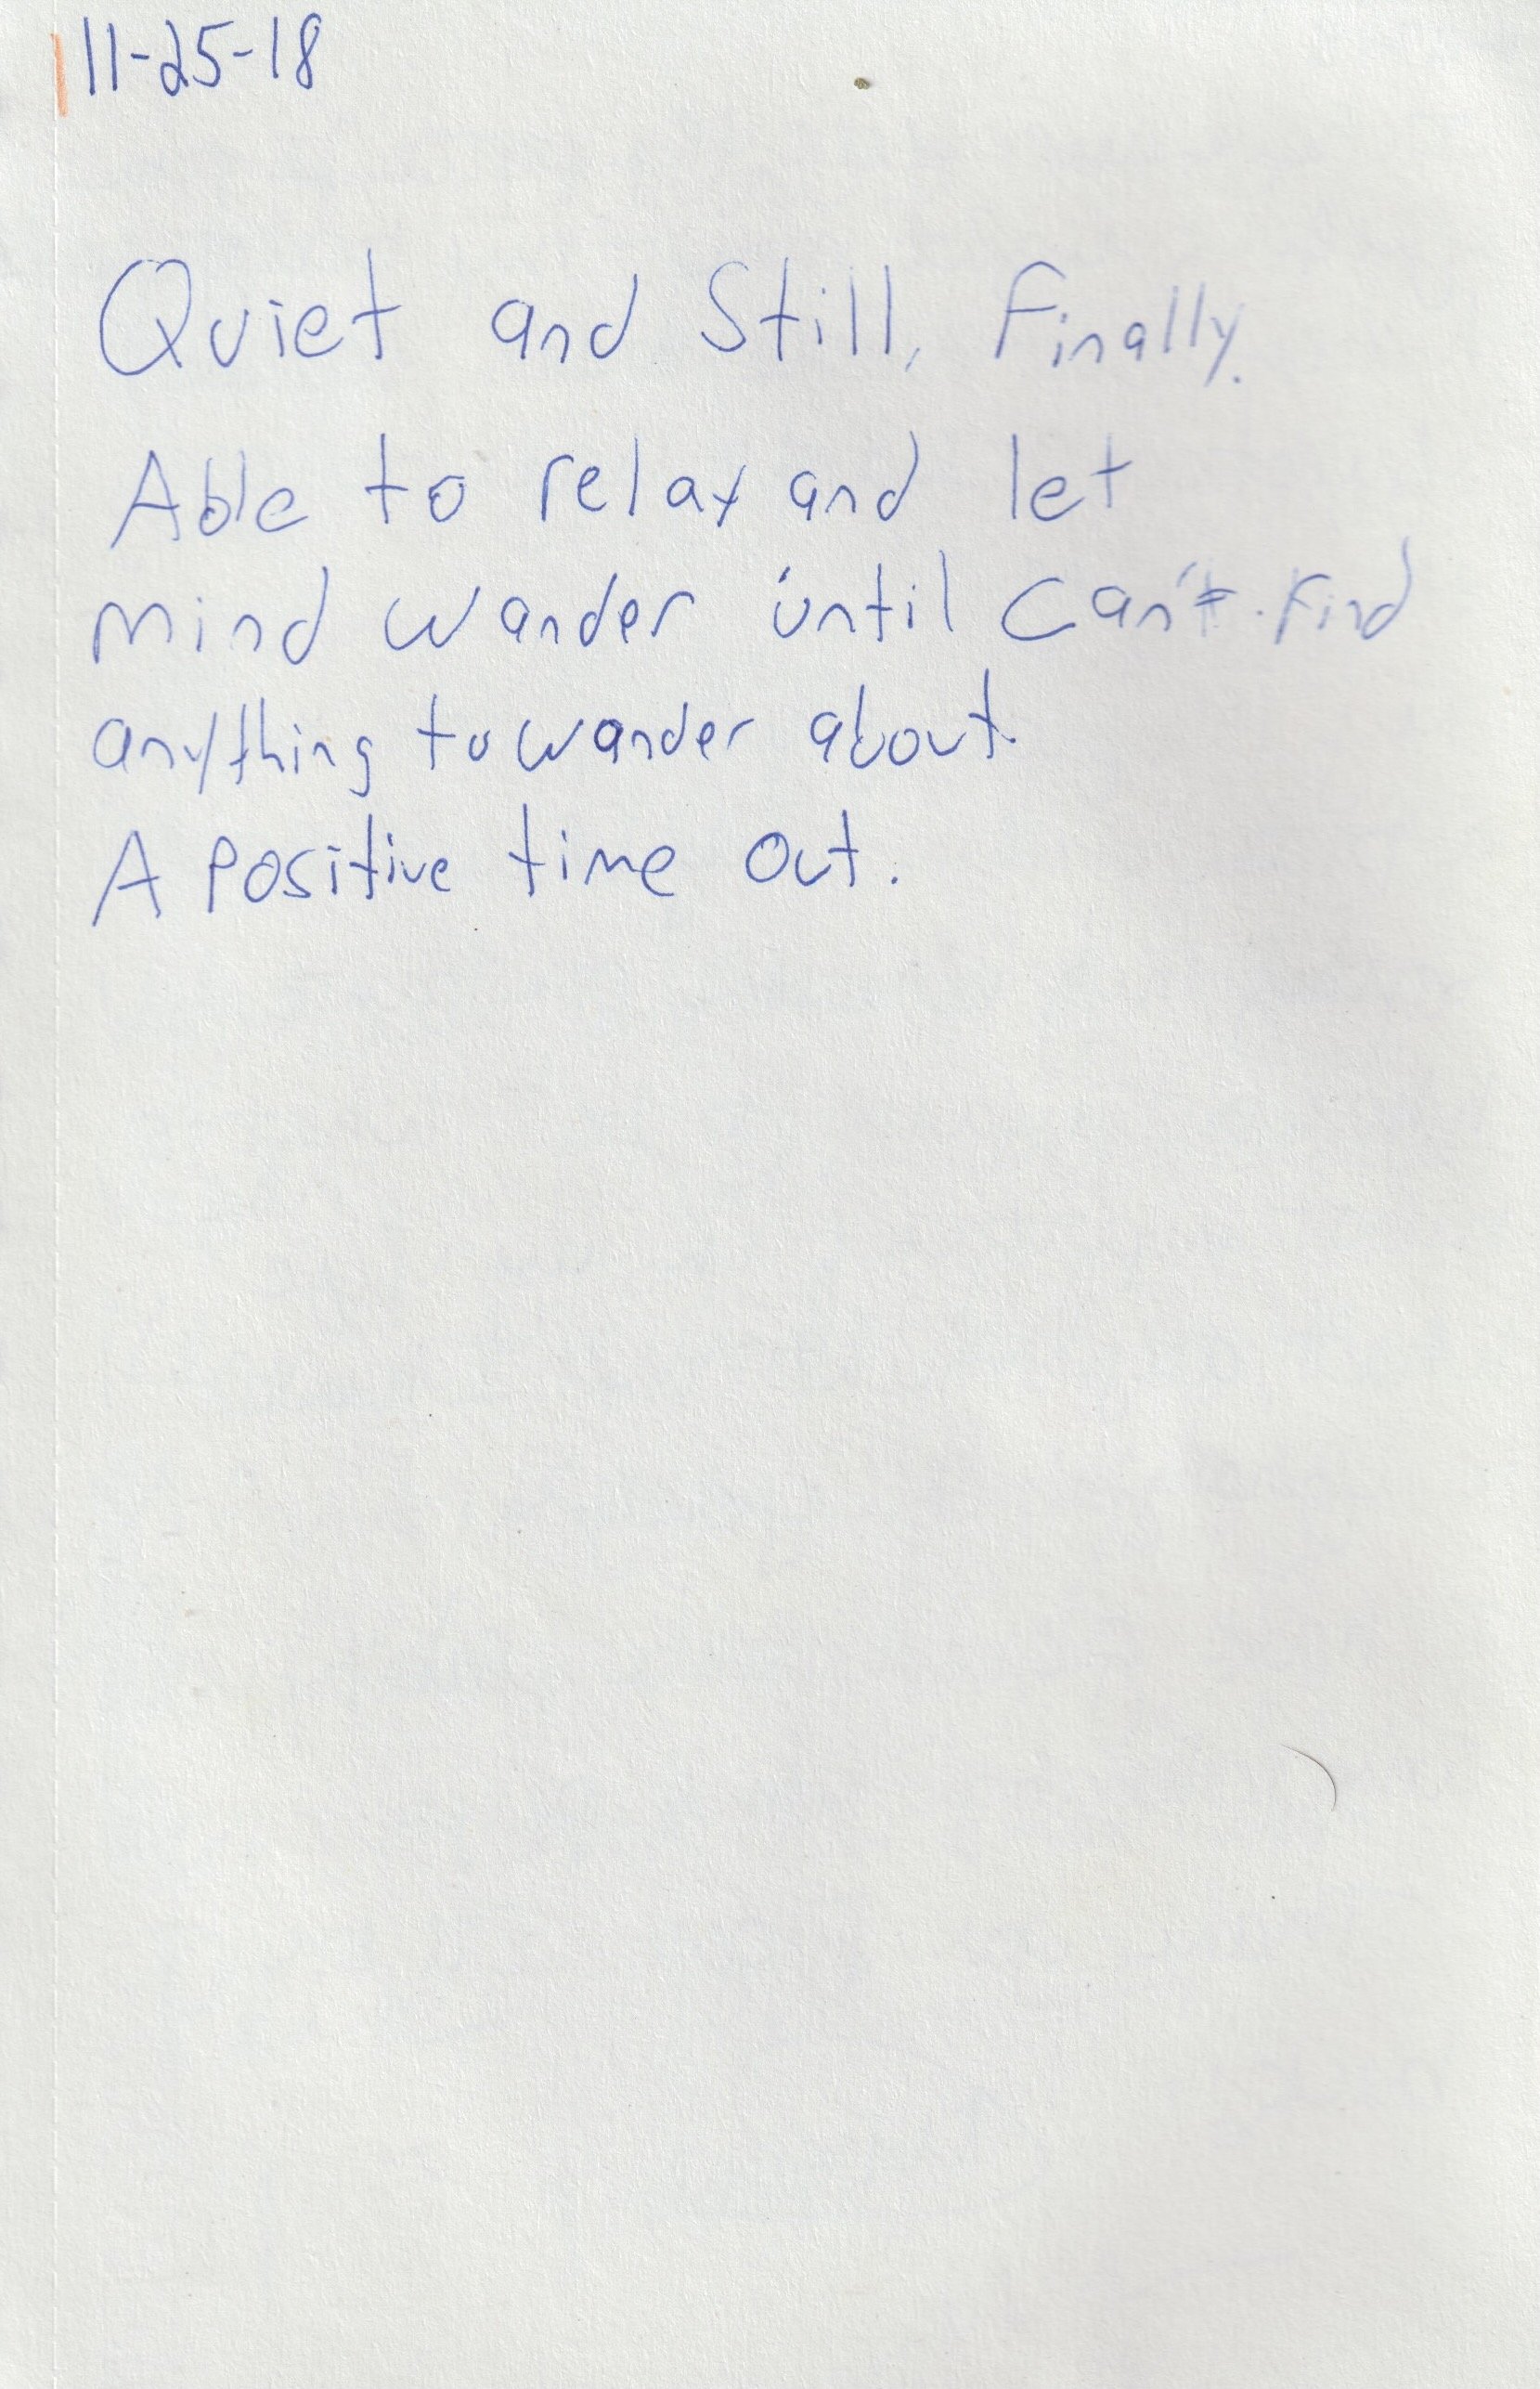 11-25-18
Quiet and Still, Finally.
Able to relax and let
mind wander until can't find
anything to wander about.
A positive time out.